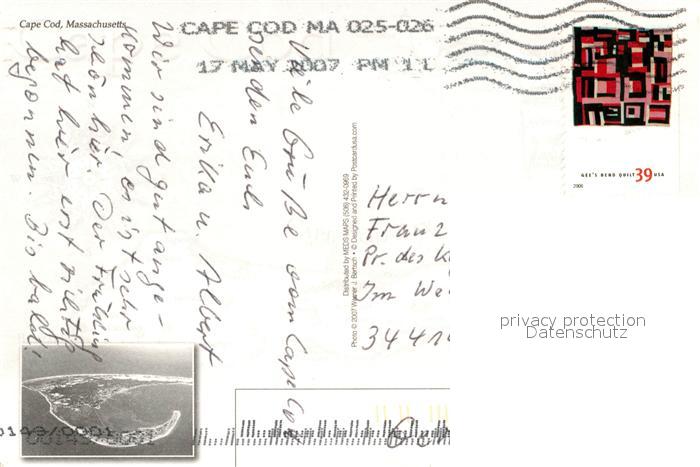 Cape Cod, Massachusetts
CAPE COD MA 025-026
17 MAY 2007 PM 1 L
GEE'S BEND QUILT 39 USA
2006
Viele Grüße vom Cape Cod
senden Euch
Erika u. Albert
Wir sind gut ange-
kommen es ist sehr
schön hier. Der Frühling
hat hier erst richtig
begonnen. Bis bald!
Distributed by MEDS MAPS (508) 432-0969
Photo © 2007 Werner J. Bertsch • © Designed and Printed by Postcardusa.com
Herrn
Franz
Pr. des K
Im We
3441
privacy protection
Datenschutz
00149/0001